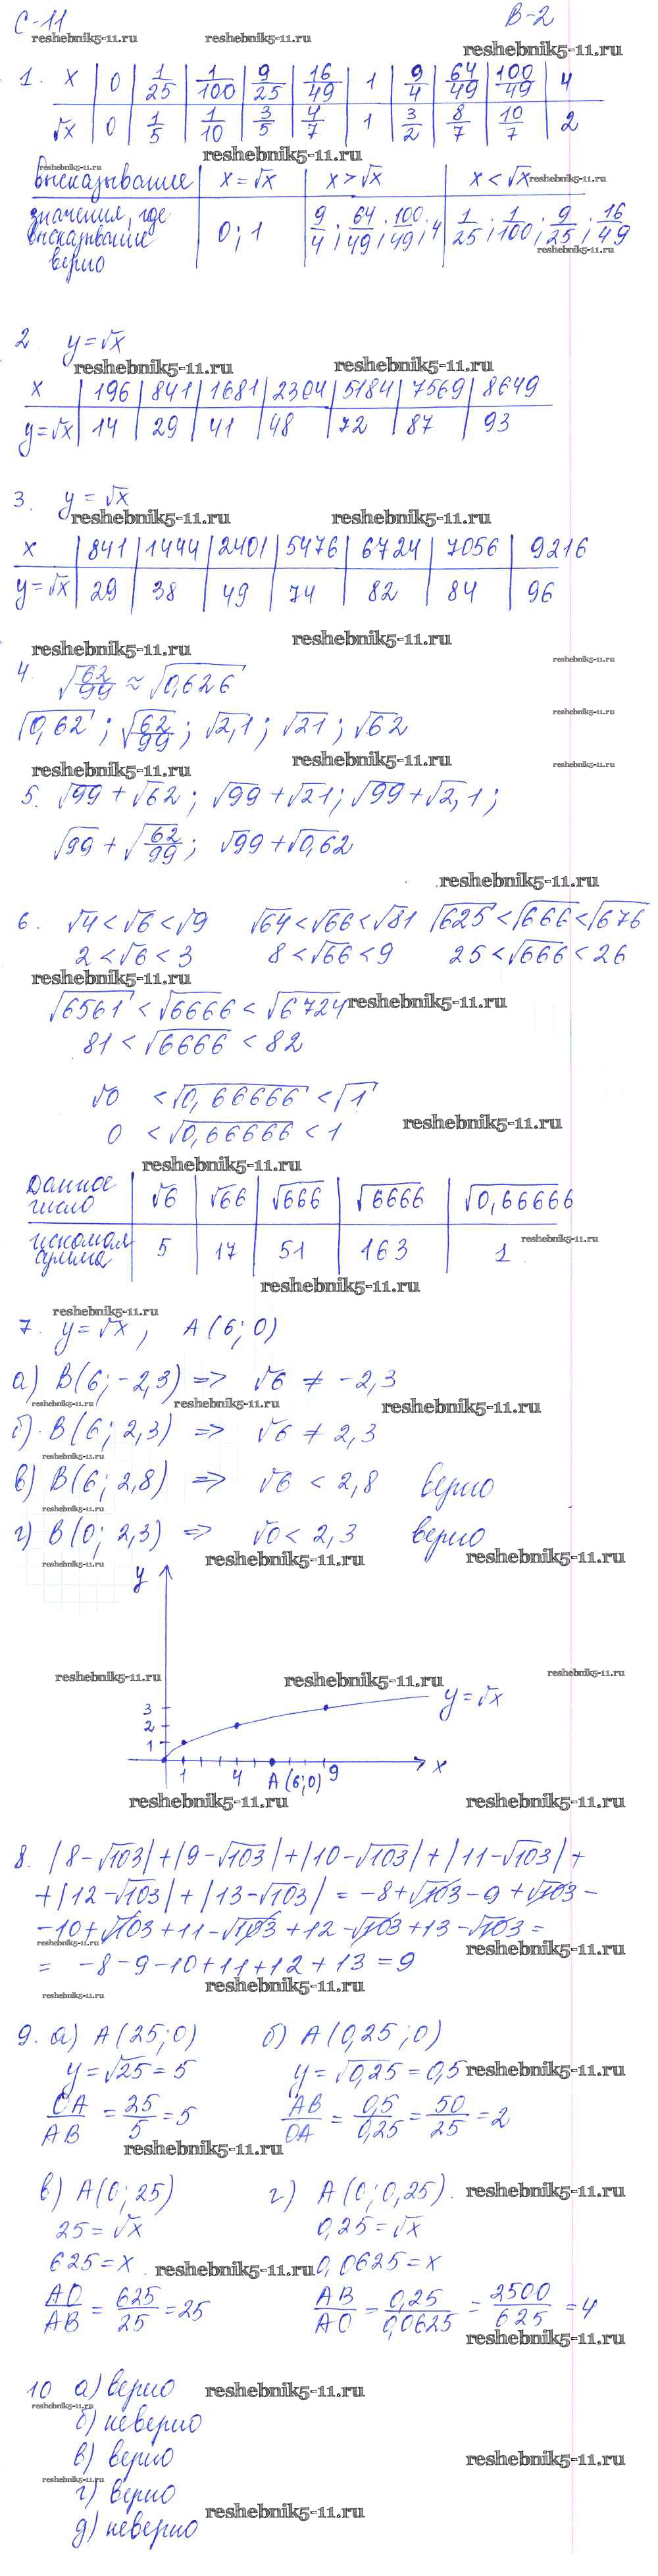 С-11 В-2
reshebnik5-11.ru reshebnik5-11.ru reshebnik5-11.ru
1. x | 0 | 1/25 | 1/100 | 9/25 | 16/49 | 1 | 9/4 | 64/49 | 100/49 | 4
√x | 0 | 1/5 | 1/10 | 3/5 | 4/7 | 1 | 3/2 | 8/7 | 10/7 | 2
reshebnik5-11.ru
reshebnik5-11.ru
высказывание | x = √x | x > √x | x < √x reshebnik5-11.ru
значения, где высказывание верно | 0; 1 | 9/4; 64/49; 100/49; 4 | 1/25; 1/100; 9/25; 16/49
reshebnik5-11.ru
2 y = √x
reshebnik5-11.ru reshebnik5-11.ru
x | 196 | 841 | 1681 | 2304 | 5184 | 7569 | 8649
y = √x | 14 | 29 | 41 | 48 | 72 | 87 | 93
3. y = √x
reshebnik5-11.ru reshebnik5-11.ru
x | 841 | 1444 | 2401 | 5476 | 6724 | 7056 | 9216
y = √x | 29 | 38 | 49 | 74 | 82 | 84 | 96
reshebnik5-11.ru reshebnik5-11.ru reshebnik5-11.ru
4. √(62/99) ≈ √0,626
√0,62; √(62/99); √2,1; √21; √62
reshebnik5-11.ru
reshebnik5-11.ru reshebnik5-11.ru reshebnik5-11.ru
5. √99 + √62; √99 + √21; √99 + √2,1;
√99 + √(62/99); √99 + √0,62
reshebnik5-11.ru
6. √4 < √6 < √9 √64 < √66 < √81 √625 < √666 < √676
2 < √6 < 3 8 < √66 < 9 25 < √666 < 26
reshebnik5-11.ru
√6561 < √6666 < √6724 reshebnik5-11.ru
81 < √6666 < 82
√0 < √0,66666 < √1
reshebnik5-11.ru
0 < √0,66666 < 1
reshebnik5-11.ru
Данное число | √6 | √66 | √666 | √6666 | √0,66666
искомая сумма | 5 | 17 | 51 | 163 | 1
reshebnik5-11.ru
reshebnik5-11.ru
reshebnik5-11.ru
7. y = √x, A (6; 0)
а) B(6; -2,3) => √6 ≠ -2,3
reshebnik5-11.ru reshebnik5-11.ru reshebnik5-11.ru
б). B(6; 2,3) => √6 ≠ 2,3
reshebnik5-11.ru
в) B(6; 2,8) => √6 < 2,8 верно
reshebnik5-11.ru
г) B(0; 2,3) => √0 < 2,3 верно
reshebnik5-11.ru reshebnik5-11.ru reshebnik5-11.ru
y
reshebnik5-11.ru reshebnik5-11.ru reshebnik5-11.ru
y = √x
3
2
1
x
1 4 A (6;0) 9
reshebnik5-11.ru reshebnik5-11.ru
8. |8-√103| + |9-√103| + |10-√103| + |11-√103| +
+ |12-√103| + |13-√103| = -8+√103 -9+√103 -
-10+√103 +11-√103 +12-√103 +13-√103 =
reshebnik5-11.ru reshebnik5-11.ru
= -8-9-10+11+12+13 = 9
reshebnik5-11.ru reshebnik5-11.ru
9. а) A (25; 0) б) A (0,25; 0)
y = √25 = 5 y = √0,25 = 0,5 reshebnik5-11.ru
OA/AB = 25/5 = 5 AB/OA = 0,5/0,25 = 50/25 = 2
reshebnik5-11.ru
в) A(0; 25) г) A (0; 0,25). reshebnik5-11.ru
25 = √x 0,25 = √x
625 = x reshebnik5-11.ru 0,0625 = x
AO/AB = 625/25 = 25 AB/AO = 0,25/0,0625 = 2500/625 = 4
reshebnik5-11.ru
10 а) верно reshebnik5-11.ru
reshebnik5-11.ru
б) неверно
в) верно reshebnik5-11.ru
reshebnik5-11.ru
г) верно
reshebnik5-11.ru
д) неверно